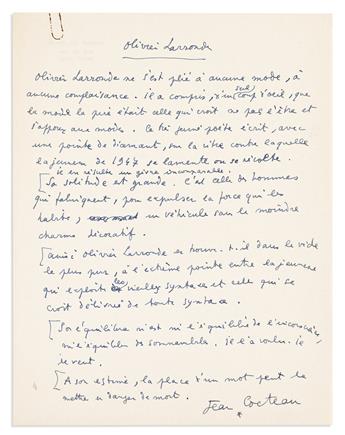 Olivier Larronde
Olivier Larronde ne s'est plié à aucune mode, à
aucune complaisance. Il a compris, d'un seul coup d'œil, que
la mode la pire était celle qui croit ne pas l'être et
s'oppose aux modes. Ce très jeune poète écrit, avec
une pointe de diamant, sur la vitre contre laquelle
la jeunesse de 1947 se lamente ou se révolte.
Il en résulte un givre incomparable.
[Sa solitude est grande. C'est celle des hommes
qui fabriquent, pour expulser la force qui les
habite, un véhicule sans le moindre
charme décoratif.
[Ainsi Olivier Larronde se trouve-t-il dans le vide
le plus pur, à l'extrême pointe entre la jeunesse
qui exploite les vieilles syntaxes et celle qui se
croit délivrée de toute syntaxe.
[Son équilibre n'est ni l'équilibre de l'inconscience
ni l'équilibre des somnambules. Il l'a voulu. Il
le veut.
[A son estime, la place d'un mot peut la
mettre en danger de mort.
Jean Cocteau